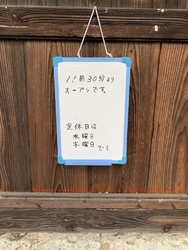 11時30分より
オープンです。
定休日は
水曜日
木曜日 です